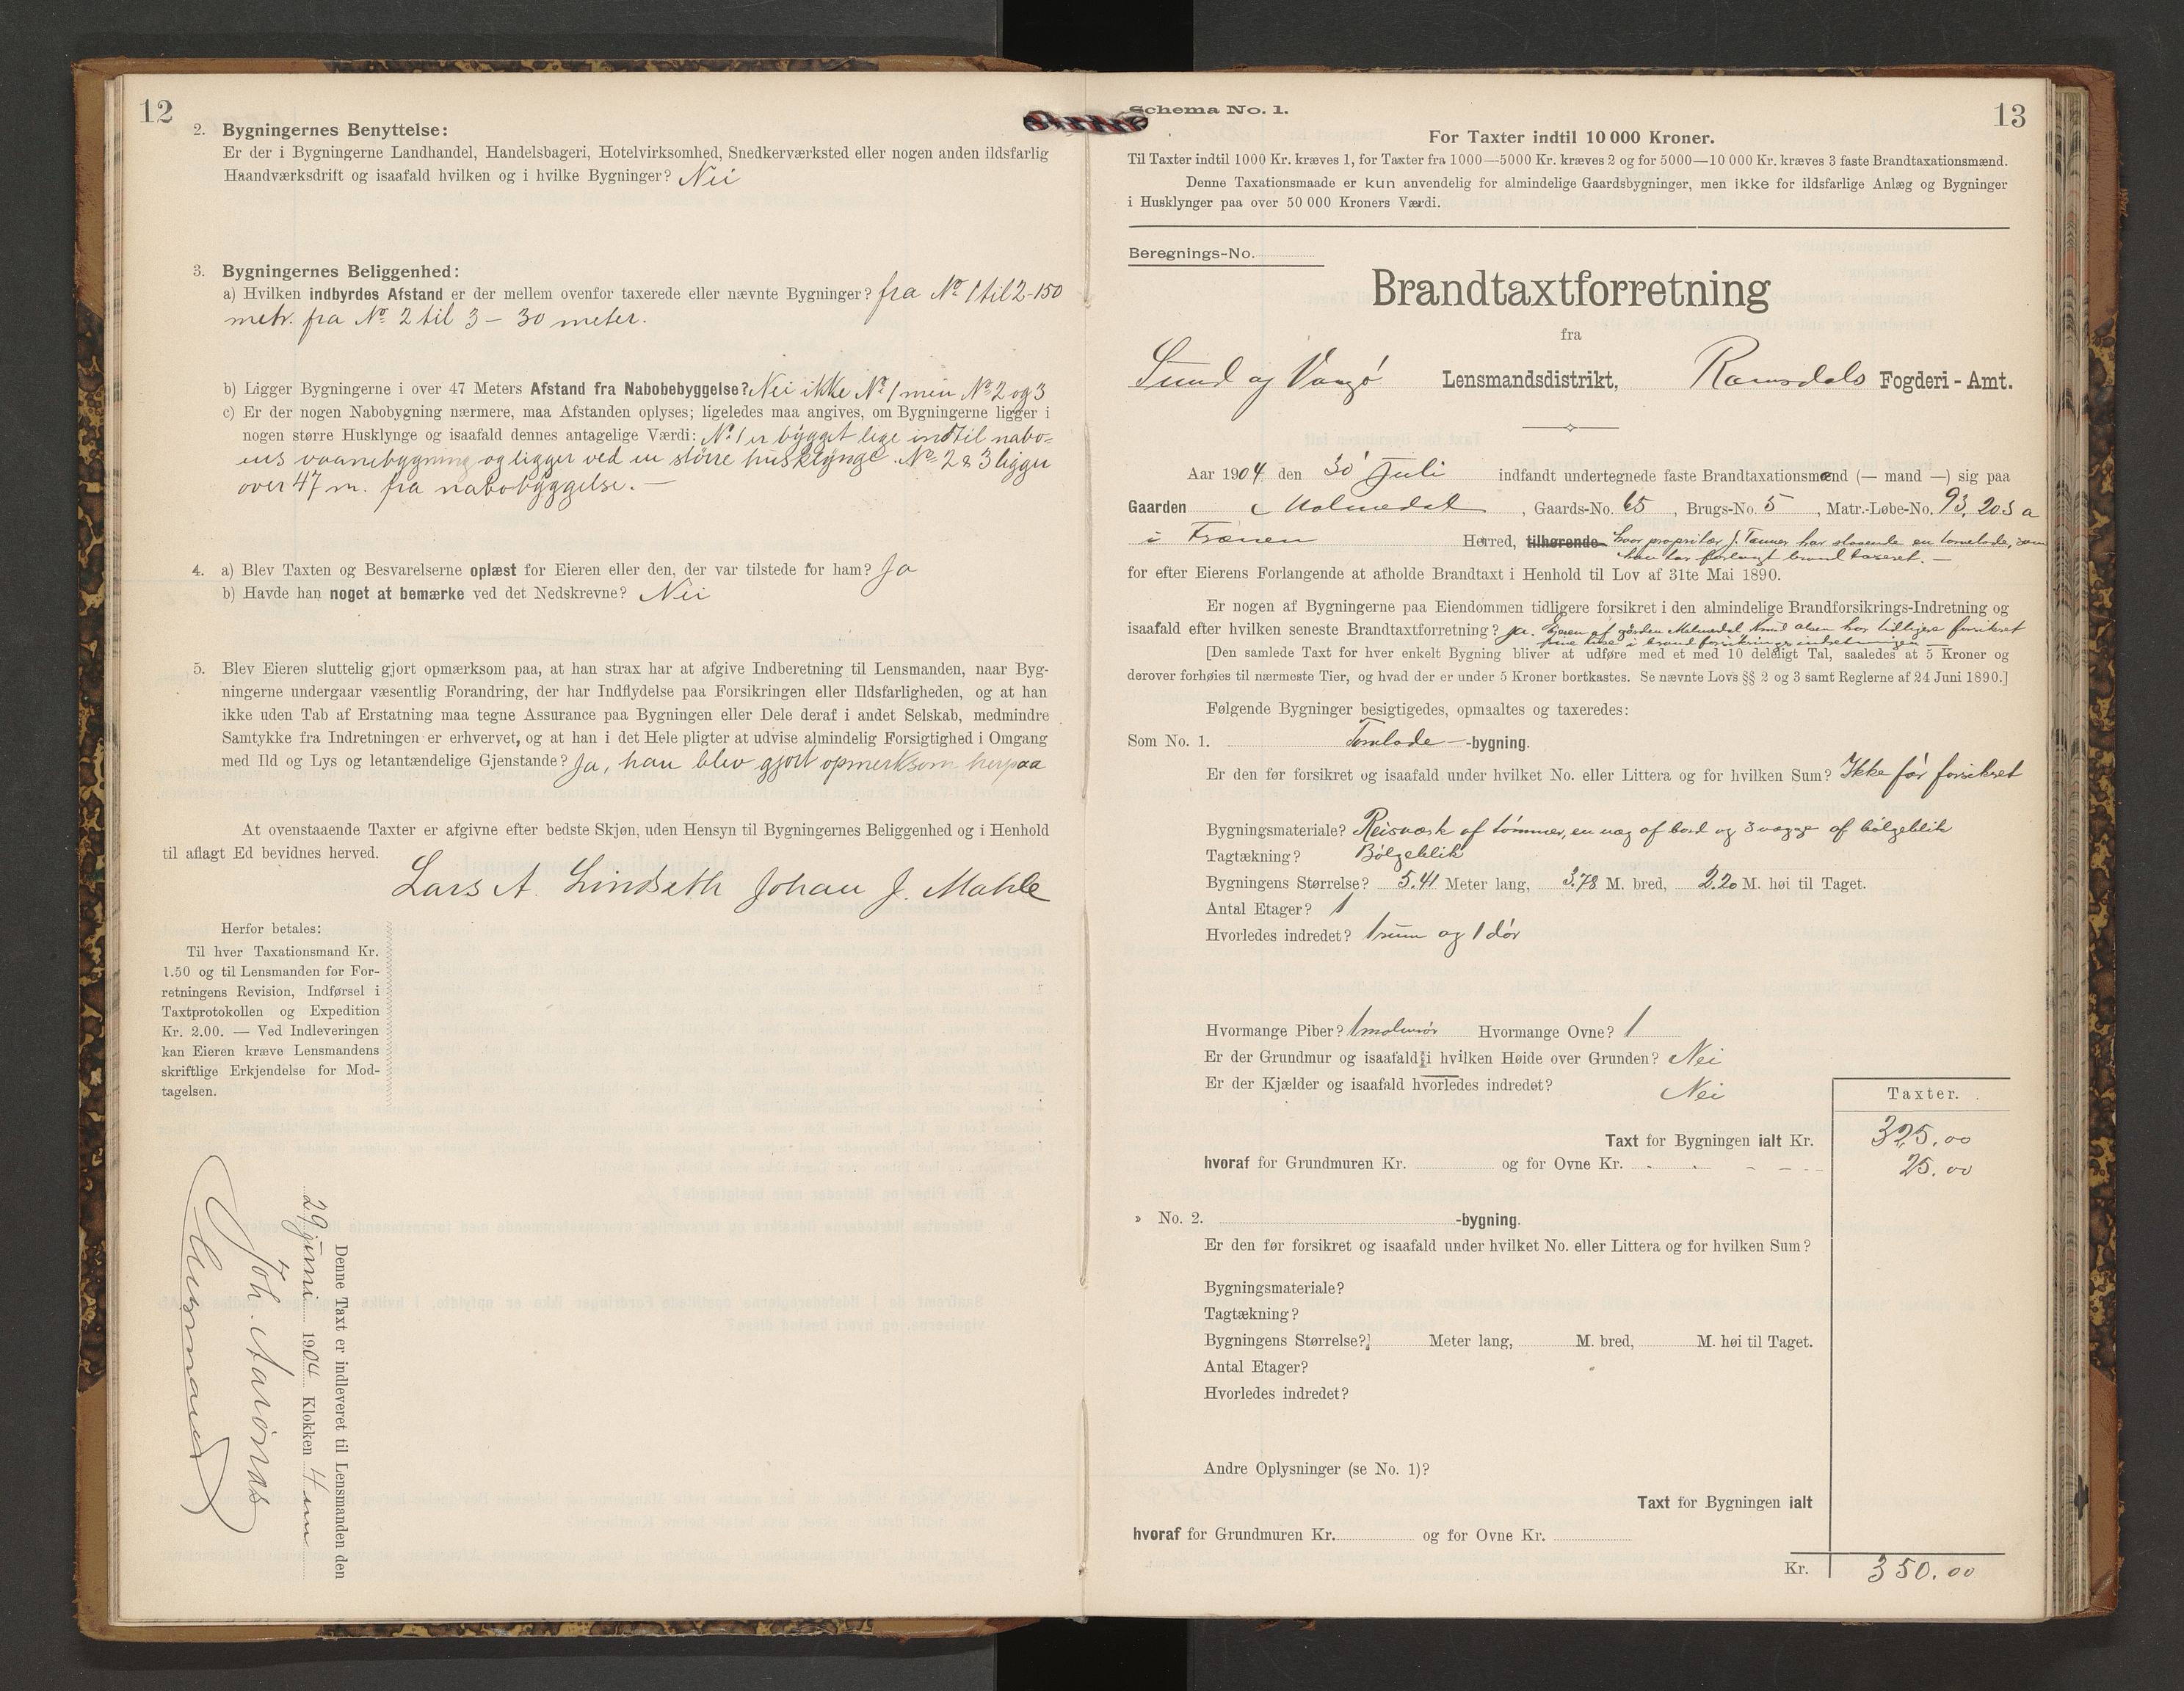 12
2. Bygningernes Benyttelse:
Er der i Bygningerne Landhandel, Handelsbageri, Hotelvirksomhed, Snedkerværksted eller nogen anden ildsfarlig
Haandværksdrift og isaafald hvilken og i hvilke Bygninger? Nei
3. Bygningernes Beliggenhed:
a) Hvilken indbyrdes Afstand er der mellem ovenfor taxerede eller nævnte Bygninger? fra No 1 til 2 - 150
metr. fra No 2 til 3 – 30 meter.
b) Ligger Bygningerne i over 47 Meters Afstand fra Nabobebyggelse? Nei ikke No 1 men No 2 og 3
c) Er der nogen Nabobygning nærmere, maa Afstanden oplyses; ligeledes maa angives, om Bygningerne ligger i
nogen større Husklynge og isaafald dennes antagelige Værdi: No 1 er bygget lige indtil nabo=
ens vaanebygning og ligger ved en större husklynge. No 2 & 3 ligger
over 47 m. fra nabobyggelse. —
4. a) Blev Taxten og Besvarelserne oplæst for Eieren eller den, der var tilstede for ham? Ja
b) Havde han noget at bemærke ved det Nedskrevne? Nei
5. Blev Eieren sluttelig gjort opmærksom paa, at han strax har at afgive Indberetning til Lensmanden, naar Byg-
ningerne undergaar væsentlig Forandring, der har Indflydelse paa Forsikringen eller Ildsfarligheden, og at han
ikke uden Tab af Erstatning maa tegne Assurance paa Bygningen eller Dele deraf i andet Selskab, medmindre
Samtykke fra Indretningen er erhvervet, og at han i det Hele pligter at udvise almindelig Forsigtighed i Omgang
med Ild og Lys og letantændelige Gjenstande? Ja, han blev gjort opmerksom herpaa
At ovenstaaende Taxter er afgivne efter bedste Skjøn, uden Hensyn til Bygningernes Beliggenhed og i Henhold
til aflagt Ed bevidnes herved.
Lars A. Lindseth Johan J. Mahle
Herfor betales:
Til hver Taxationsmand Kr.
1.50 og til Lensmanden for For-
retningens Revision, Indførsel i
Taxtprotokollen og Expedition
Kr. 2.00. — Ved Indleveringen
kan Eieren kræve Lensmandens
skriftlige Erkjendelse for Mod-
tagelsen.
Denne Taxt er indleveret til Lensmanden den
29 juni 1904 Klokken 4 em
Joh. Aarönæs
13
Schema No. 1.
For Taxter indtil 10 000 Kroner.
Til Taxter indtil 1000 Kr. kræves 1, for Taxter fra 1000—5000 Kr. kræves 2 og for 5000—10 000 Kr. kræves 3 faste Brandtaxationsmænd.
Denne Taxationsmaade er kun anvendelig for almindelige Gaardsbygninger, men ikke for ildsfarlige Anlæg og Bygninger
i Husklynger paa over 50 000 Kroners Værdi.
Beregnings-No.
Brandtaxtforretning
fra
Sund og Vaagö Lensmandsdistrikt, Romsdals Fogderi - Amt.
Aar 1904 den 30 Juli indfandt undertegnede faste Brandtaxationsmænd (— mand —) sig paa
Gaarden Malmedal, Gaards-No. 65, Brugs-No. 5, Matr.-Løbe-No. 93, 203 a
i Frænen Herred, tilhørende hvor propritær J. Tanner har staaende en tomelade, som
han har forlangt brand taxeret. —
for efter Eierens Forlangende at afholde Brandtaxt i Henhold til Lov af 31te Mai 1890.
Er nogen af Bygningerne paa Eiendommen tidligere forsikret i den almindelige Brandforsikrings-Indretning og
isaafald efter hvilken seneste Brandtaxtforretning? Ja. Eieren af gården Malmedal Knud Olsen har tidligere forsikret
sine huse i brandforsikrings indretningen
[Den samlede Taxt for hver enkelt Bygning bliver at udføre med et med 10 deleligt Tal, saaledes at 5 Kroner og
derover forhøies til nærmeste Tier, og hvad der er under 5 Kroner bortkastes. Se nævnte Lovs §§ 2 og 3 samt Reglerne af 24 Juni 1890.]
Følgende Bygninger besigtigedes, opmaaltes og taxeredes:
Som No. 1. Tomlade -bygning.
Er den før forsikret og isaafald under hvilket No. eller Littera og for hvilken Sum? Ikke før forsikret
Bygningsmateriale? Reisværk af tömmer, en væg af bord og 3 vægge af bölgeblik
Tagtækning? Bölgeblik
Bygningens Størrelse? 5.41 Meter lang, 3.78 M. bred, 2.20 M. høi til Taget.
Antal Etager? 1
Hvorledes indredet? 1 rum og 1 dör
Hvormange Piber? 1 Hvormange Ovne? 1
Er der Grundmur og isaafald i hvilken Høide over Grunden? Nei
Er der Kjælder og isaafald hvorledes indredet? Nei
Taxter.
Taxt for Bygningen ialt Kr. 325.00
hvoraf for Grundmuren Kr. og for Ovne Kr. 25.00
» No. 2. -bygning.
Er den før forsikret og isaafald under hvilket No. eller Littera og for hvilken Sum?
Bygningsmateriale?
Tagtækning?
Bygningens Størrelse? Meter lang, M. bred, M. høi til Taget.
Antal Etager?
Hvorledes indredet?
Andre Oplysninger (se No. 1)?
Taxt for Bygningen ialt
hvoraf for Grundmuren Kr. og for Ovne Kr.
Kr. 350.00